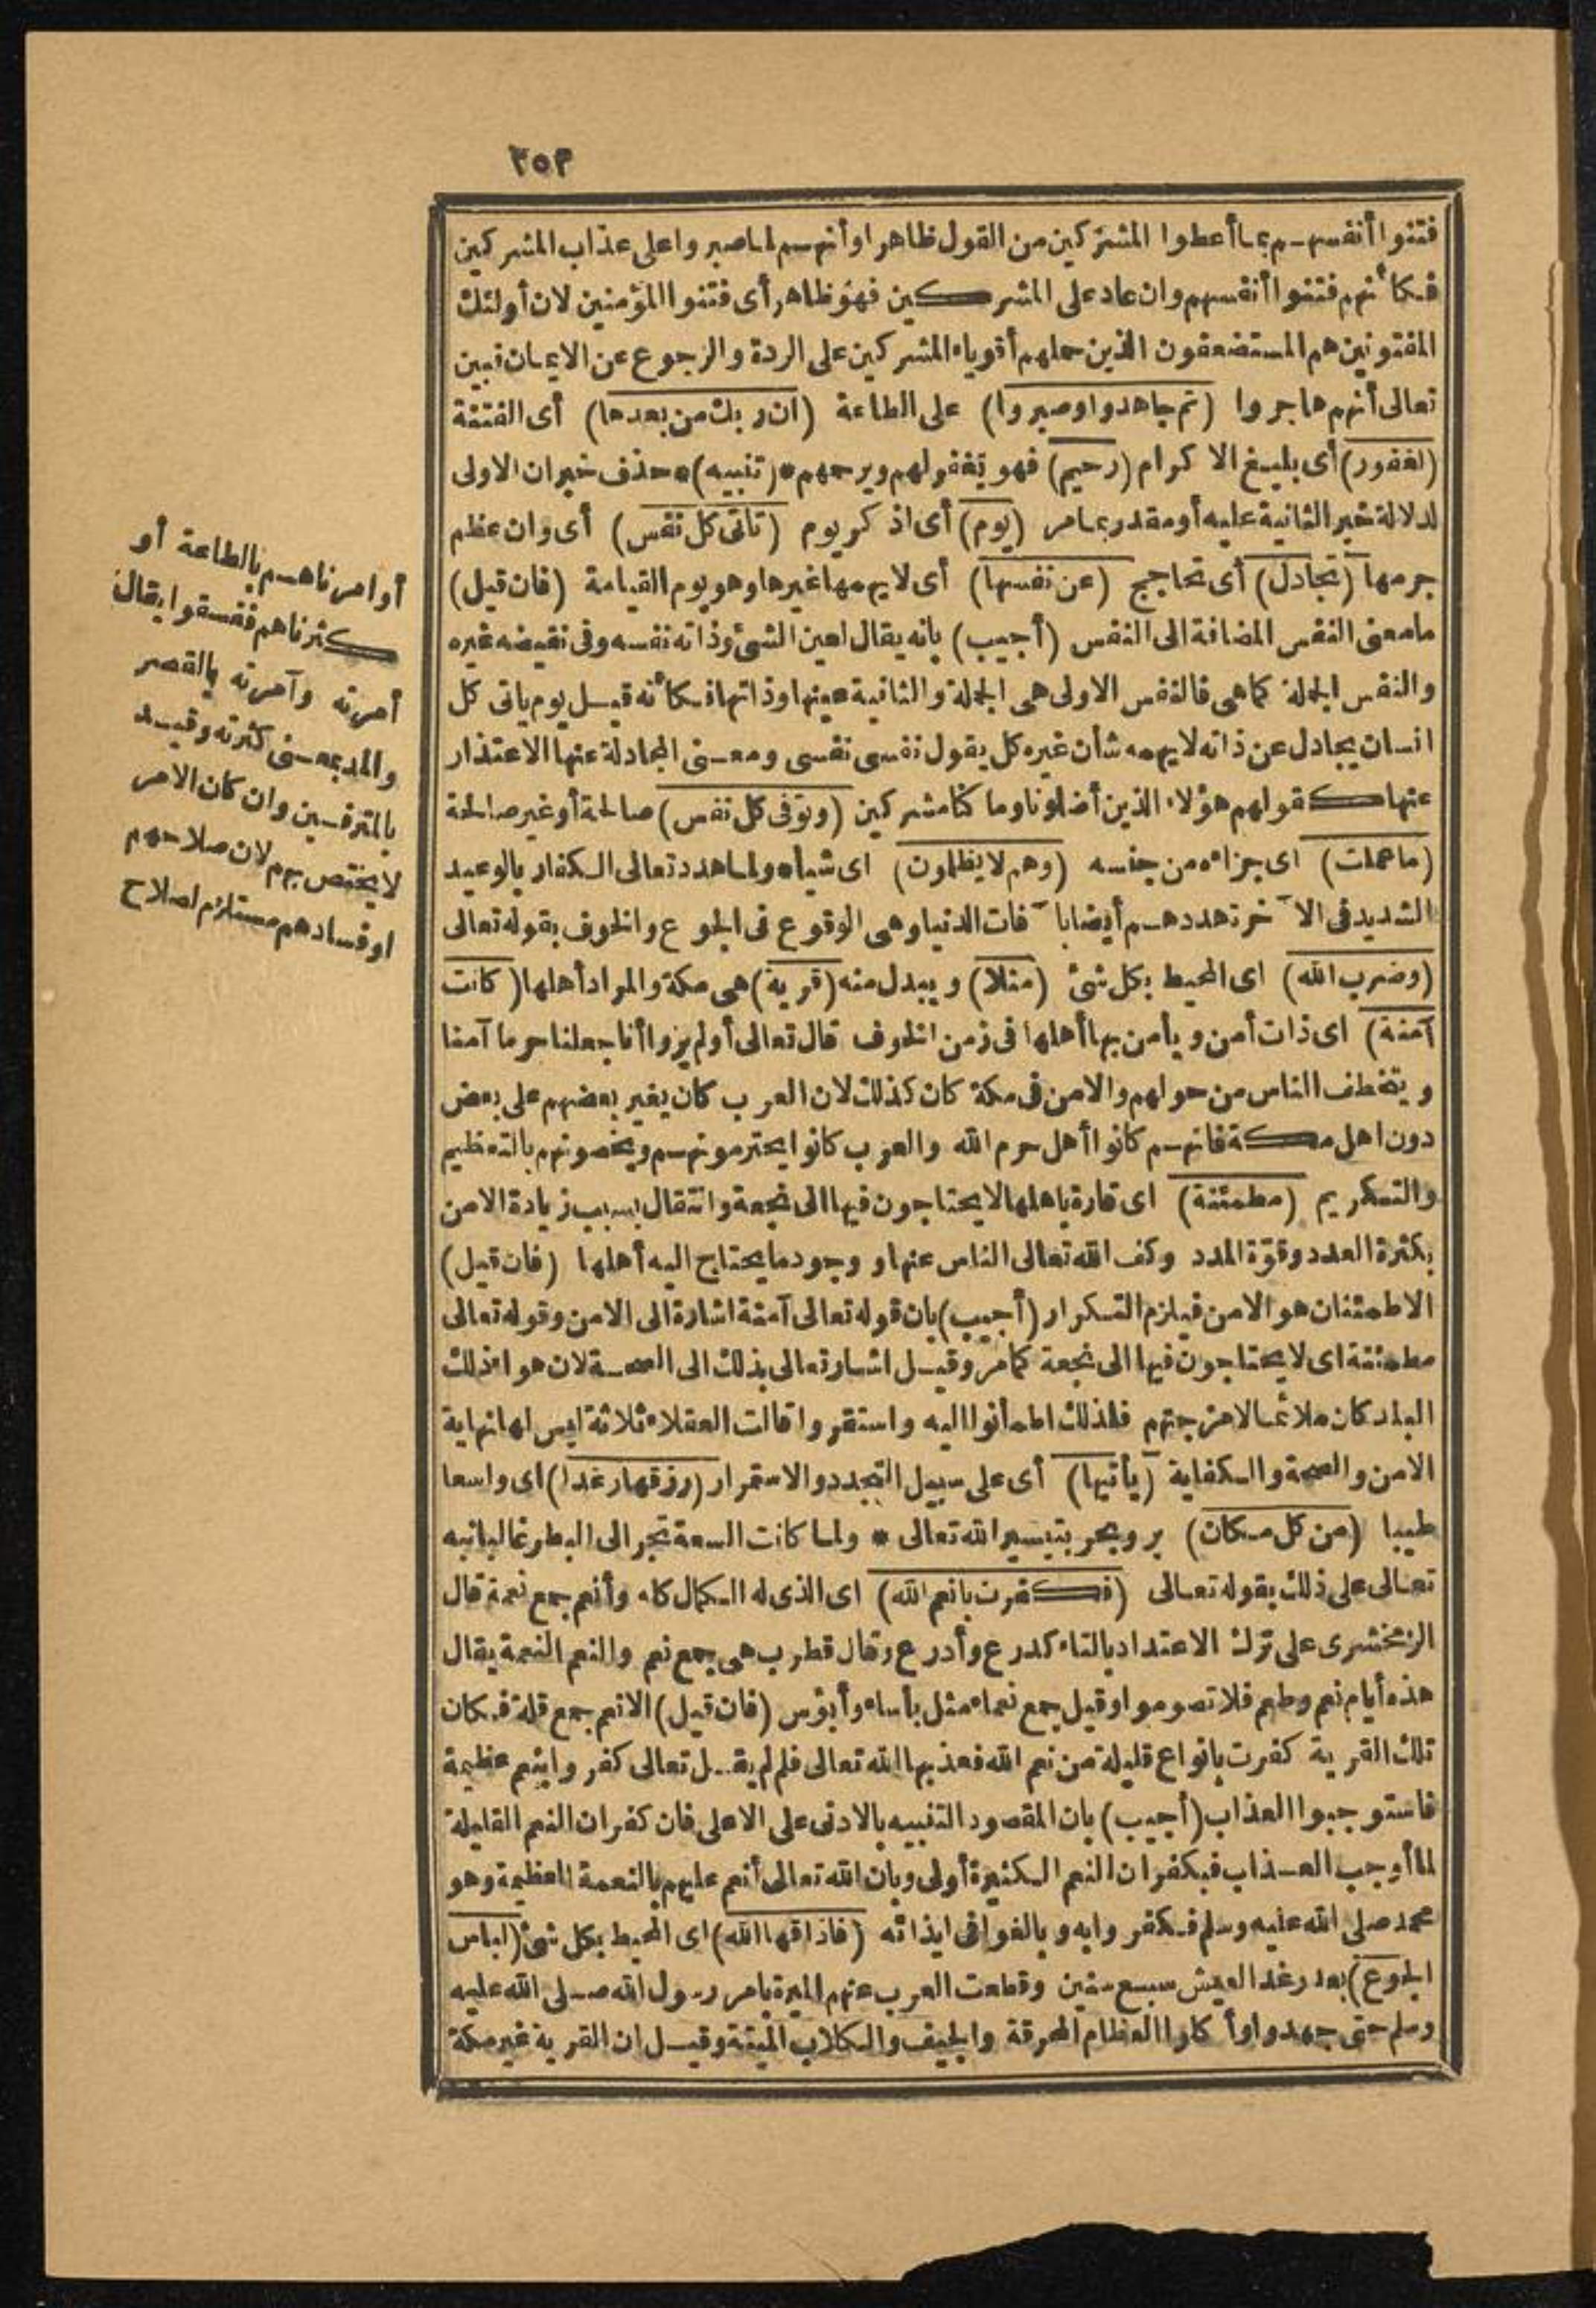 ٢٥٣
فتنوا أنفسهم بما أعطوا المشركين من القول ظاهرا وأنهم لما صبروا على عذاب المشركين
فكأنهم فتنوا أنفسهم وان عاد على المشركين فهو ظاهر أى فتنوا المؤمنين لان أولئك
المفتونين هم المستضعفون الذين حملهم أقوياء المشركين على الردة والرجوع عن الايمان فبين
تعالى أنهم هاجروا (ثم جاهدوا وصبروا) على الطاعة (ان ربك من بعدها) أى الفتنة
(لغفور) أى بليغ الاكرام (رحيم) فهو يغفر لهم ويرحمهم * (تنبيه) * حذف خبر ان الاولى
لدلالة خبر الثانية عليه أو مقدر بما مر (يوم) أى اذكر يوم (تاتى كل نفس) أى وان عظم
جرمها (تجادل) أى تحاجج (عن نفسها) أى لا يهمها غيرها وهو يوم القيامة (فان قيل)
ما معنى النفس المضافة الى النفس (أجيب) بانه يقال لعين الشئ وذاته نفسه وفى نقيضه غيره
والنفس الجملة كما هى فالنفس الاولى هى الجملة والثانية عينها وذاتها فكأنه قيل يوم ياتى كل
انسان يجادل عن ذاته لا يهمه شأن غيره كل يقول نفسى نفسى ومعنى المجادلة عنها الاعتذار
عنها كقولهم هؤلاء الذين أضلونا وما كنا مشركين (وتوفى كل نفس) صالحة أو غير صالحة
(ما عملت) اى جزاءه من جنسه (وهم لا يظلمون) اى شيأ * ولما هدد تعالى الكفار بالوعيد
الشديد فى الآخرة هددهم أيضا بآفات الدنيا وهى الوقوع فى الجوع والخوف بقوله تعالى
(وضرب الله) اى المحيط بكل شئ (مثلا) ويبدل منه (قرية) هى مكة والمراد أهلها (كانت
آمنة) اى ذات أمن ويأمن بها أهلها فى زمن الخوف قال تعالى أولم يروا أنا جعلنا حرما آمنا
ويتخطف الناس من حولهم والامن فى مكة كان كذلك لان العرب كان يغير بعضهم على بعض
دون اهل مكة فانهم كانوا أهل حرم الله والعرب كانوا يحترمونهم ويخصونهم بالتعظيم
والتكريم (مطمئنة) اى قارة باهلها لا يحتاجون فيها الى نجعة وانتقال بسبب زيادة الامن
بكثرة العدد وقوّة المدد وكف الله تعالى الناس عنها ووجود ما يحتاج اليه أهلها (فان قيل)
الاطمئنان هو الامن فيلزم التكرار (أجيب) بان قوله تعالى آمنة اشارة الى الامن وقوله تعالى
مطمئنة اى لا يحتاجون فيها الى نجعة كما مرّ وقيل اشار تعالى بذلك الى الصحة لان هواء ذلك
البلد كان ملائما لامزجتهم فلذلك اطمأنوا اليه واستقروا قالت العقلاء ثلاثة ليس لها نهاية
الامن والصحة والكفاية (يأتيها) أى على سبيل التجدد والاستمرار (رزقها رغدا) اى واسعا
طيبا (من كل مكان) بر وبحر بتيسير الله تعالى * ولما كانت السعة تجر الى البطر غالبا نبه
تعالى على ذلك بقوله تعالى (فكفرت بانعم الله) اى الذى له الكمال كله وأنعم جمع نعمة قال
الزمخشرى على ترك الاعتداد بالتاء كدرع وأدرع وقال قطرب هى جمع نعم والنعم النعمة يقال
هذه أيام نعم وطعم فلا تصوموا وقيل جمع نعماء مثل بأساء وأبؤس (فان قيل) الانعم جمع قلة فكان
تلك القرية كفرت بانواع قليلة من نعم الله فعذبها الله تعالى فلم لم يقل تعالى كفروا بنعم عظيمة
فاستوجبوا العذاب (أجيب) بان المقصود التنبيه بالادنى على الاعلى فان كفران النعم القليلة
لما أوجب العذاب فبكفران النعم الكثيرة أولى وبان الله تعالى أنعم عليهم بالنعمة العظيمة وهو
محمد صلى الله عليه وسلم فكفروا به وبالغوا فى ايذائه (فاذاقها الله) اى المحيط بكل شئ (لباس
الجوع) بعد رغد العيش سبع سنين وقطعت العرب عنهم الميرة بامر رسول الله صلى الله عليه
وسلم حتى جهدوا وأكلوا العظام المحرقة والجيف والكلاب الميتة وقيل ان القرية غير مكة
أو امرناهم بالطاعة أو
كثرناهم ففسقوا يقال
أمرته وآمرته بالقصر
والمد بمعنى كثرته وقيد
بالمترفين وان كان الامر
لا يختص بهم لان صلاحهم
او فسادهم مستلزم لصلاح